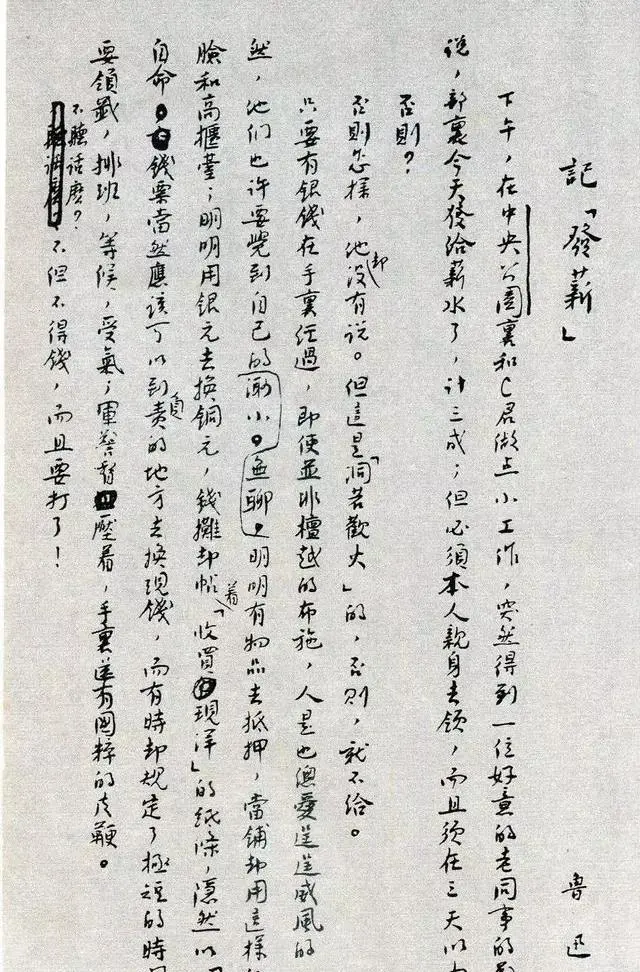 記「發薪」
魯迅
下午，在中央公園裏和C君做点小工作，突然得到一位好意的老同事的
说，部裏今天發给薪水了，计三成；但必须本人親身去领，而且须在三天以
否則？
否則怎樣，他却没有说。但這是「洞若觀火」的，否則，就不给。
只要有銀錢在手裏经過，即使並非檀越的布施，人是也總愛逞逞威風的
然，他们也许要觉到自己的渺小。無聊。明明有物品去抵押，當铺却用這樣
臉和高櫃臺；明明用銀元去换铜元，錢攤却帖着「收買現洋」的纸條，隱然以
自命。錢票當然應該可以到負責的地方去换現錢，而有時却规定了極短的時
要领籤，排班，等候，受氣；軍警督壓着，手裏還有國粹的皮鞭。
不聽話麽？不但不得錢，而且要打了！